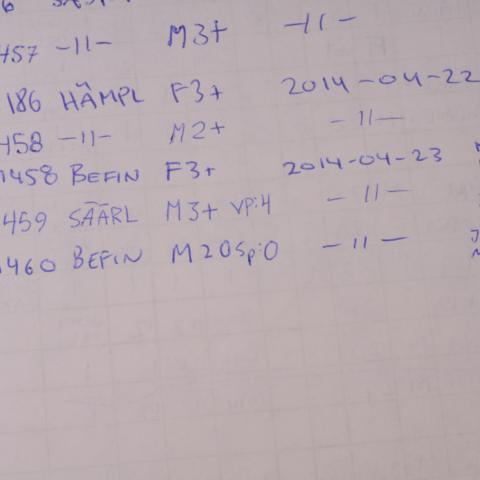 457 -11- M3+ -11-
186 HÄMPL F3+ 2014-04-22
458 -11- M2+ -11-
1458 BEFIN F3+ 2014-04-23
459 SÄÄRL M3+ VP:4 -11-
1460 BEFIN M2OSp:0 -11-